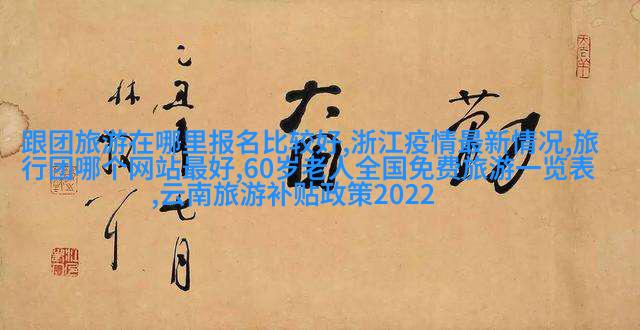 跟团旅游在哪里报名比较好,浙江疫情最新情况,旅
行团哪个网站最好,60岁老人全国免费旅游一览表
,云南旅游补贴政策2022
勤
乙丑七月
林